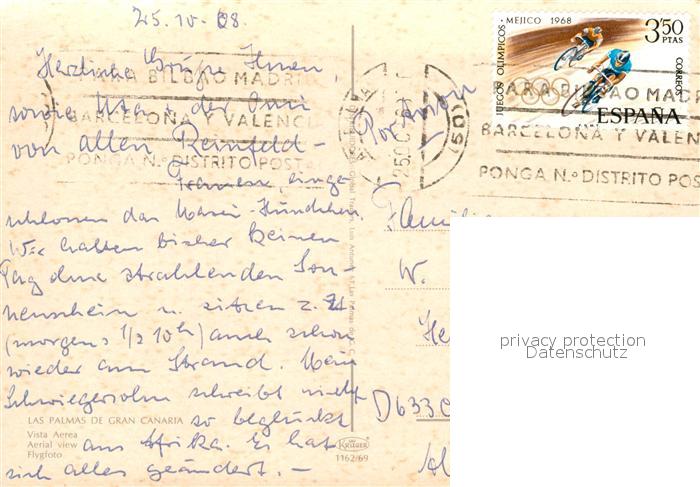 25.10.68.
Herzliche Grüße Ihnen,
sowie Uta u. der Omi
von allen Reinfeld-
Frauen, einge-
schlossen das Maxi-Hündchen.
Wir hatten bisher keinen
Tag ohne strahlenden Son-
nenschein u. sitzen z. Zt
(morgens 1/2 10 h) auch schon
wieder am Strand. Mein
Schwiegersohn schreibt nicht
so beglückt
aus Afrika. Es hat
sich alles geändert. –
LAS PALMAS DE GRAN CANARIA
Vista Aerea
Aerial view
Flygfoto
KRÜGER
1162/69
Por avion
JUEGOS OLIMPICOS - MEJICO 1968
3'50
PTAS
CORREOS
ESPAÑA
PARA BILBAO MADRI
BARCELONA Y VALENCI
PONGA N.º DISTRITO POSTA
25.OC
PARA BILBAO MADR
BARCELONA Y VALEN
PONGA N.º DISTRITO POS
Familie
W.
He
D633
privacy protection
Datenschutz